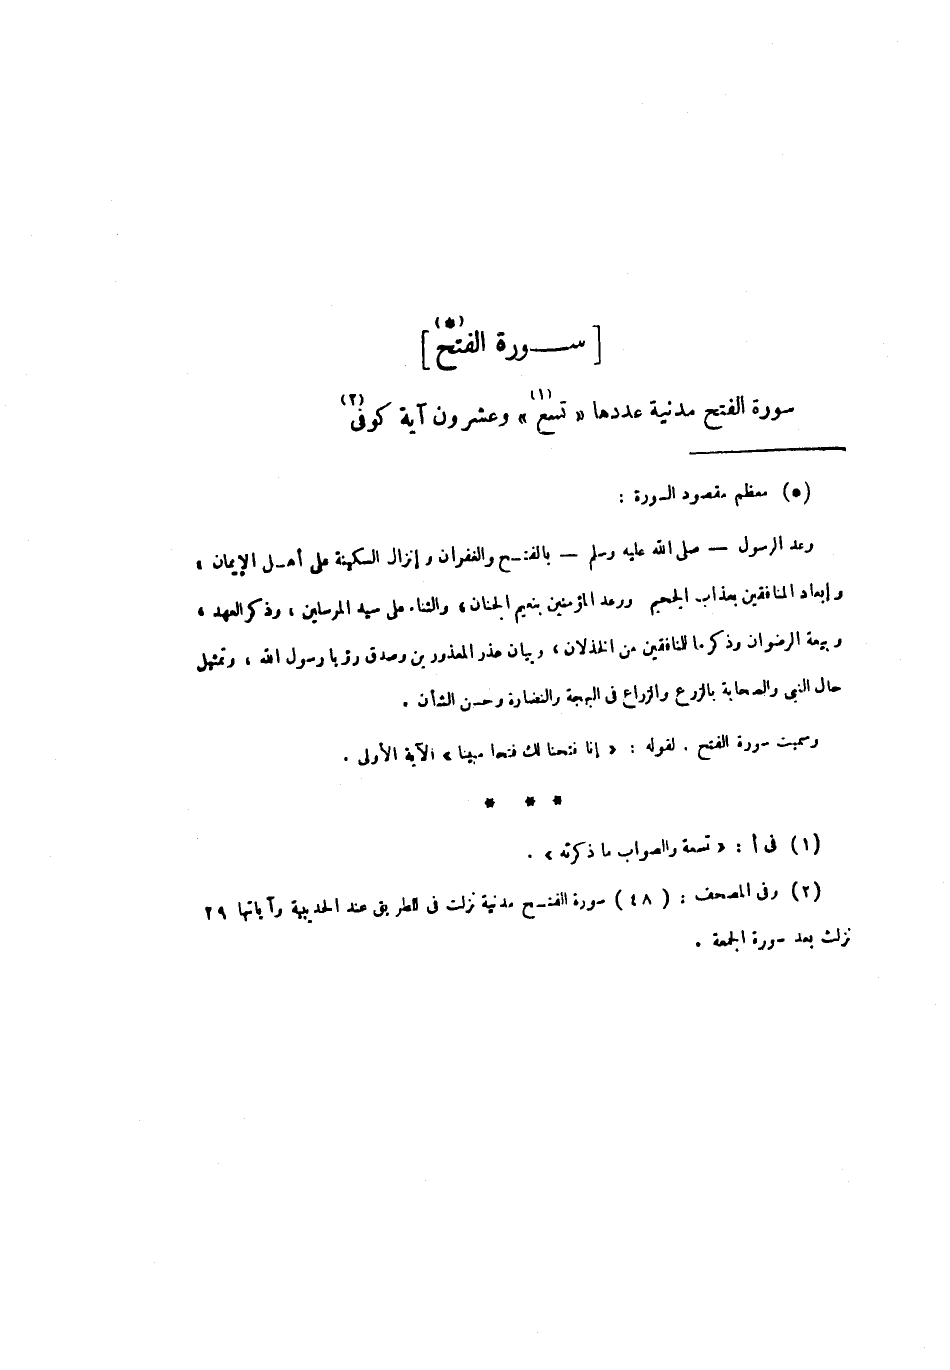 [ سـورة الفتح (*) ]
سورة الفتح مدنية عددها « تسع (١) » وعشرون آية كوفى (٢)
(*) معظم مقصود السورة :
وعد الرسول — صلى الله عليه وسلم — بالفتـح والغفران وإنزال السكينة على أهـل الإيمان ،
وإبعاد المنافقين بعذاب الجحيم ووعد المؤمنين بنعيم الجنان ، والثناء على سيد المرسلين ، وذكر العهد ،
وبيعة الرضوان وذكر ما للنافقين من الخذلان ، وبيان عذر المعذورين وصدق رؤيا رسول الله ، وتمثيل
حال النبى والصحابة بالزرع والزراع فى البهجة والنضارة وحسن الشأن .
وسميت سورة الفتح . لقوله : « إنا فتحنا لك فتحا مبينا » الآية الأولى .
* * *
(١) فى أ : « تسعة والصواب ما ذكرته » .
(٢) وفى المصحف : ( ٤٨ ) سورة الفتـح مدنية نزلت فى الطريق عند الحديبية وآياتها ٢٩
نزلت بعد سورة الجمعة .